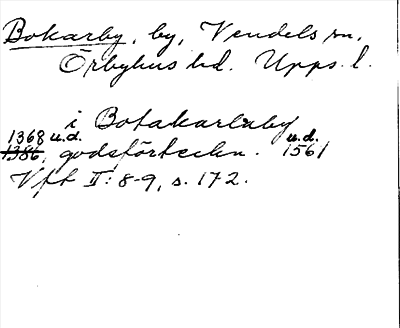 Bokarby, by, Vendels sn,
Örbyhus hd. Upps. l.
i Botakarlaby
1368 u.d. u.d.
1386, godsförteckn. 1561
Vft II: 8-9, s. 172.